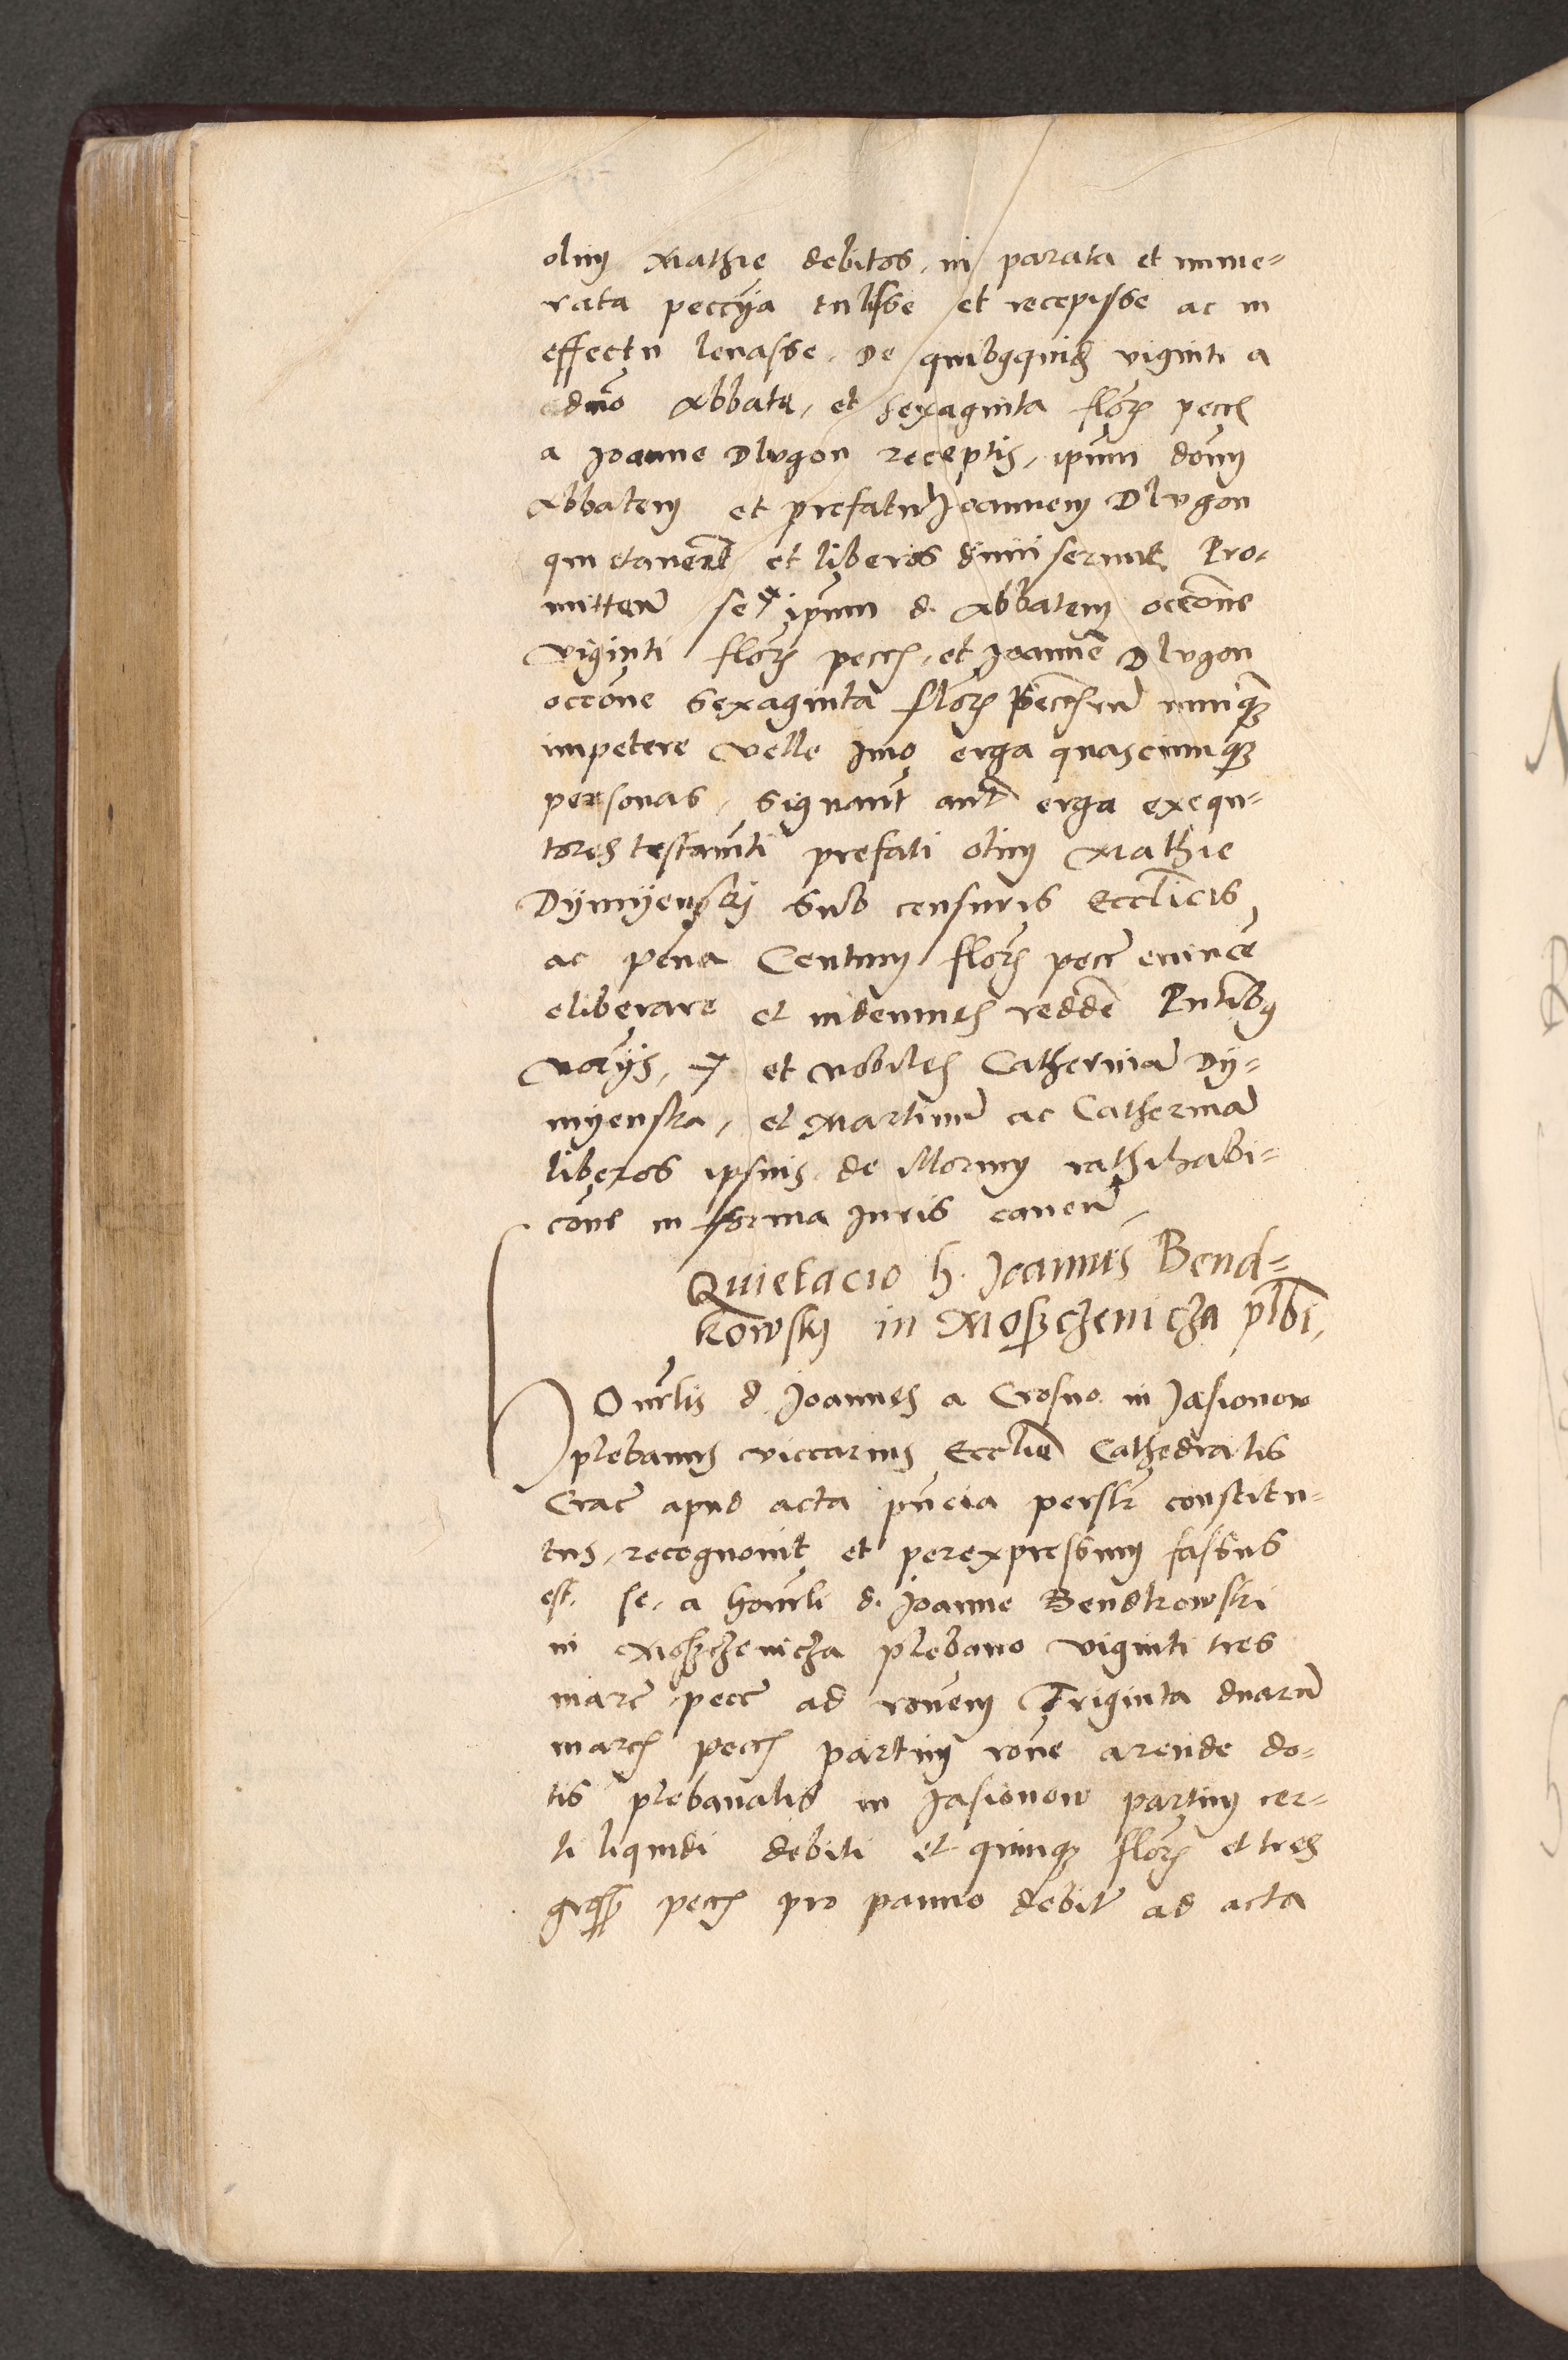 olim Mathie debitos, in parata et nume-
rata peccỹa tulisse et recepisse ac in
effectu levasse. De quibusquid viginti a
dn̄o Abbate, et sexaginta florē pecce
a Joanne Dlugon receptis, ipsum donu
Abbatem et prefatū Joannem Dlugon
quietaverūt et liberos dimiserunt Pro-
mitten se ipsum d. Abbatem occōne
viginti florē pecce, et Joannē Dlugon
occōne sexaginta florē pecce nunq̄
impetere velle Imo erga quascunq̄
personas, signant aut erga exequ-
tores testamti prefati olim Mathie
Dymyensky sub censuris Ecclīcis
ac pena Centum florē pecc evince
eliberare et indemnes reddē Pntibus
et nobiles Catherinā Dy-
myenska, et Martinū ac Catherinā
liberos ipsius de rathihabi-
cōne in forma Juris caven
Quietacio h. Joannis Bend-
kowsky in Moszchenicza plbi.
Honrlis d. Joannes a Crosno in Jasionow
plebanus viccarius Eccliē Cathedralis
Crac apud acta pn̄cia perslr constitu-
tus, recognovit et perexpressum fassus
est. se, a honrli d. Joanne Bendkowski
in Moszchenicza plebano viginti tres
marc pecc ad rōnem Triginta duarū
marce pecce partim rōne arende do-
tis plebanalis in Jasionow partim cer-
ti liquidi debiti et quinq̄ florē et tres
gross pecce pro panno debite ad acta